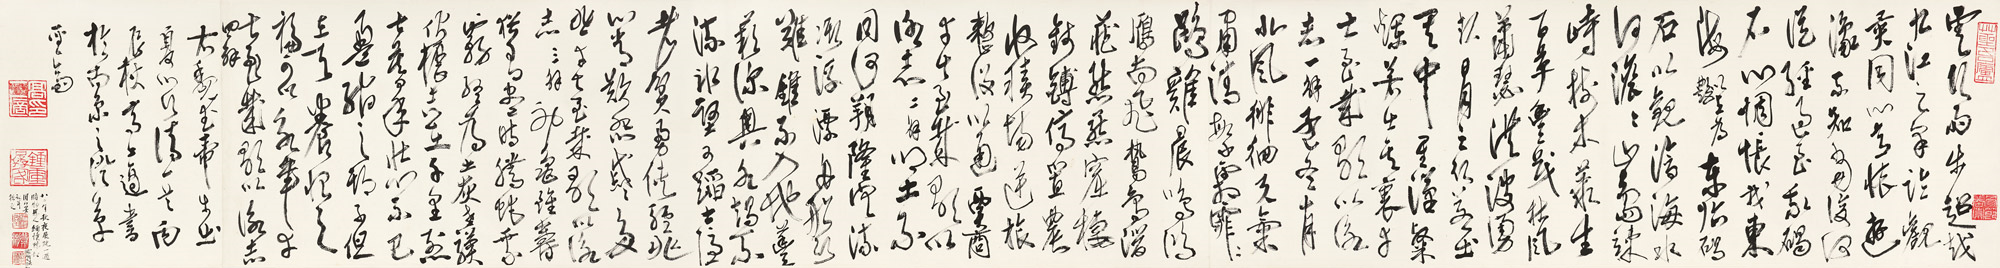 雲行雨步超越
九江之皋臨觀
異同心意懷遊
豫不知當復何
從經過至我碣
石心惆悵我東
海艷東臨碣
石以觀滄海水
何澹澹山島竦
峙樹木叢生
百草豐茂秋風
蕭瑟洪波湧
起日月之行若出
其中星漢粲
爛若出其裏幸
甚至哉歌以詠
志一解孟冬十月
北風徘徊天氣
肅清繁霜霏霏
鵾雞晨鳴鴻
雁南飛鷙鳥潛
藏熊羆窟棲
錢鎛停置農
收積場逆旅
整設以通賈商
幸甚至哉歌以
詠志二解鄉土不
同河朔隆寒流
澌浮漂舟船行
難錐不入地蘴
藾深奧水竭不
流冰堅可蹈士隱
者貧勇俠輕非
心常歎怨戚戚多
悲幸甚至哉歌以詠
志三解神龜雖壽
猶有竟時騰蛇乘
霧終為土灰老驥
伏櫪志在千里烈
士暮年壯心不已
盈縮之期不但
在天養怡之
福可得永年幸
甚至哉歌以詠志
四解
右魏武帝步出
夏門行
於南京之